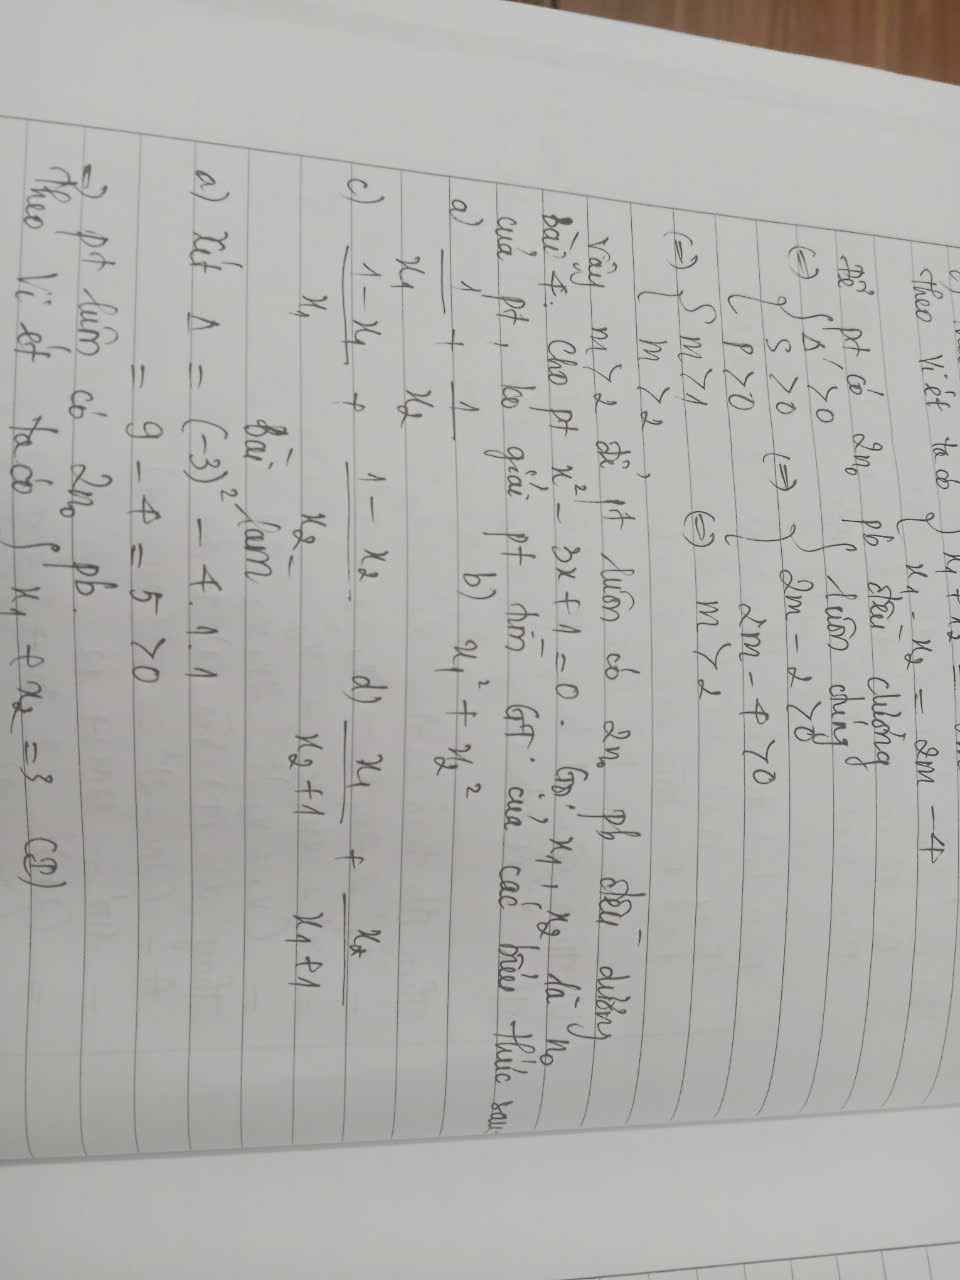 theo Vi ét ta có { x₁ + x₂ =
x₁ - x₂ = 2m - 4
Để pt có 2n₀ pb đều dương
(=) { Δ' > 0
S > 0 (=) { luôn đúng
P > 0 2m - 2 > 0
2m - 4 > 0
(=) { m > 1
m > 2 (=) m > 2
Vậy m > 2 để pt luôn có 2n₀ pb đều dương
Bài 4: Cho pt x² - 3x + 1 = 0. Gọi x₁, x₂ là n₀
của pt, ko giải pt tìm GT của các biểu thức sau
a) 1/x₁ + 1/x₂ b) x₁² + x₂²
c) (1 - x₁)/x₁ + (1 - x₂)/x₂ d) x₁/(x₂ + 1) + x₂/(x₁ + 1)
Bài làm
a) Xét Δ = (-3)² - 4.1.1
= 9 - 4 = 5 > 0
=) pt luôn có 2n₀ pb.
Theo Vi ét ta có { x₁ + x₂ = 3 (1)